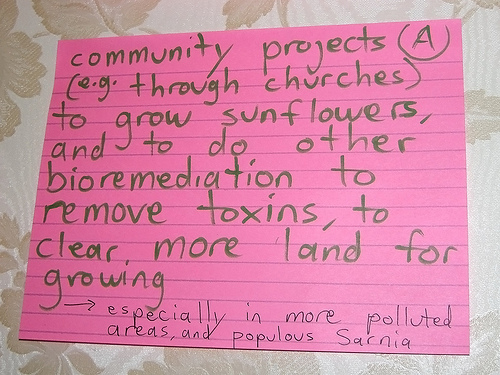 community projects (A)
(e.g. through churches)
to grow sunflowers,
and to do other
bioremediation to
remove toxins, to
clear more land for
growing
→ especially in more polluted
areas, and populous Sarnia